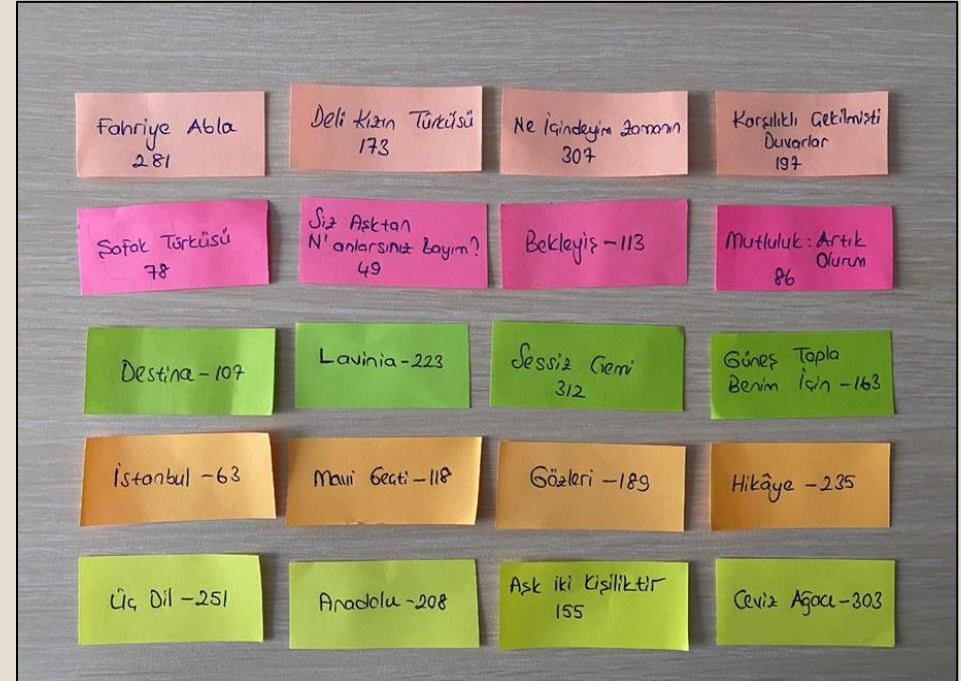 Fahriye Abla
281
Deli Kızın Türküsü
173
Ne İçindeyim Zamanın
307
Karşılıklı Çekilmişti
Duvarlar
197
Şafak Türküsü
78
Siz Aşktan
N'anlarsınız Bayım?
49
Bekleyiş - 113
Mutluluk: Artık
Olurum
86
Destina - 107
Lavinia - 223
Sessiz Gemi
312
Güneş Topla
Benim İçin - 163
İstanbul - 63
Mavi Geçti - 118
Gözleri - 189
Hikâye - 235
Üç Dil - 251
Anadolu - 208
Aşk iki Kişiliktir
155
Ceviz Ağacı - 303